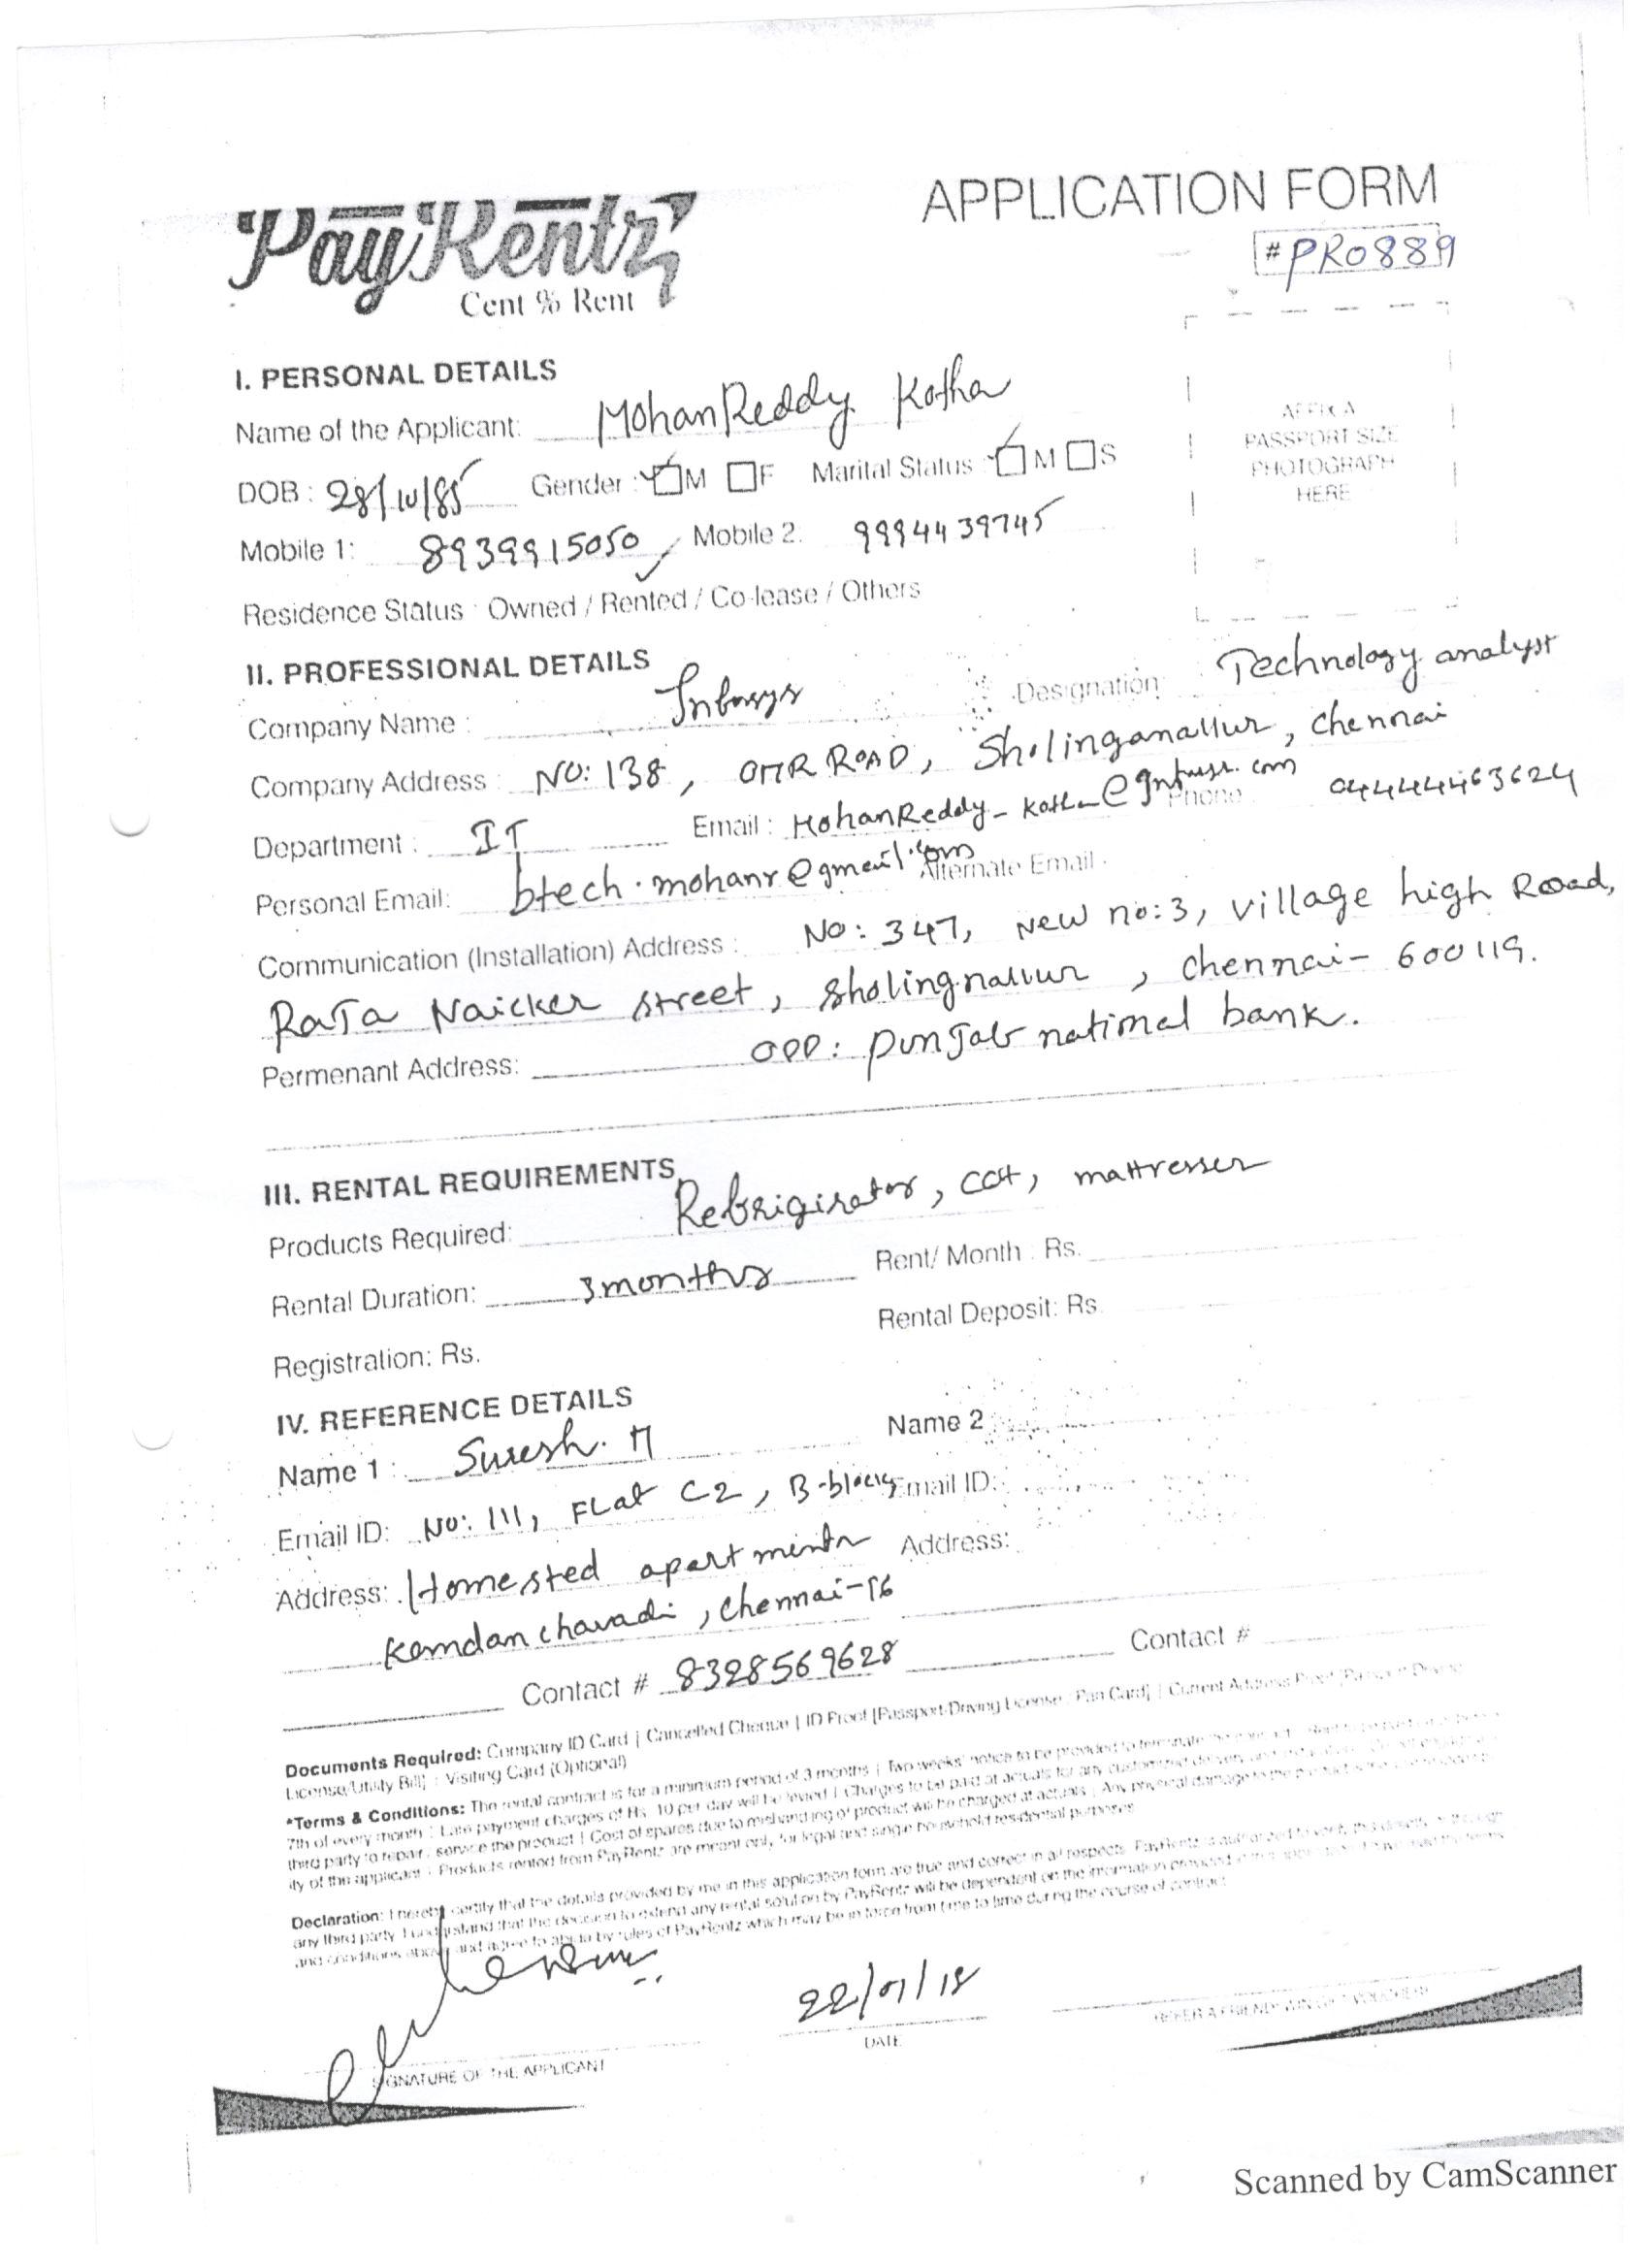 PayRentz
Cent % Rent
APPLICATION FORM
#PR0889
AFFIX A
PASSPORT SIZE
PHOTOGRAPH
HERE
I. PERSONAL DETAILS
Name of the Applicant: MohanReddy Kotha
DOB : 28/10/85 Gender : M F Marital Status : M S
Mobile 1: 8939915050 Mobile 2: 9994439745
Residence Status : Owned / Rented / Co-lease / Others
II. PROFESSIONAL DETAILS
Company Name : Infosys Designation Technology analyst
Company Address : NO: 138, OMR ROAD, Sholinganallur, chennai
Department : IT Email : MohanReddy_Kotha@Infosys.com Phone 04444463624
Personal Email: btech.mohanr@gmail.com Alternate Email :
Communication (Installation) Address : No: 347, New no:3, village high Road,
RaJa Naicker street, sholingnallur, chennai- 600119.
Permenant Address: opp: punJab national bank.
III. RENTAL REQUIREMENTS
Products Required: Refrigirator, cot, mattresses
Rental Duration: 3months Rent/ Month : Rs.
Registration: Rs. Rental Deposit: Rs.
IV. REFERENCE DETAILS
Name 1 : Suresh. M Name 2
Email ID: No: 111, FLat C2, B-block Email ID:
Address: Homested apartments Address:
Kamdanchavadi, chennai-
Contact # 8328569628 Contact #
Documents Required: Company ID Card | Cancelled Cheque | ID Proof [Passport/Driving License / Pan Card] | Current Address Proof [Passport/Driving
License/Utility Bill] | Visiting Card (Optional)
*Terms & Conditions: The rental contract is for a minimum period of 3 months | Two weeks' notice to be provided to terminate the contract |
7th of every month | Late payment charges of Rs. 10 per day will be levied | Charges to be paid at actuals for any
third party to repair / service the product | Cost of spares due to mishandling of product will be charged at actuals | Any physical damage to the product
ity of the applicant | Products rented from PayRentz are meant only for legal and single household residential purposes
Declaration: I hereby certify that the details provided by me in this application form are true and correct in all respects. PayRentz is authorized to verify this directly or through
any third party. I understand that the decision to extend any rental solution by PayRentz will be dependent on the information provided in this application.
and conditions above and agree to abide by rules of PayRentz which may be in force from time to time during the course of contract
22/01/18
SIGNATURE OF THE APPLICANT DATE
Scanned by CamScanner